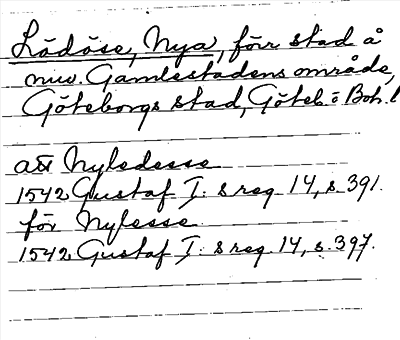 Lödöse, Nya, förr stad å
nuv. Gamlestadens område,
Göteborgs stad, Göteb. o Boh. l
att Nyledesse
1542 Gustaf I: s reg 14, s. 391.
för Nylesse
1542 Gustaf I: s reg. 14, s. 397.